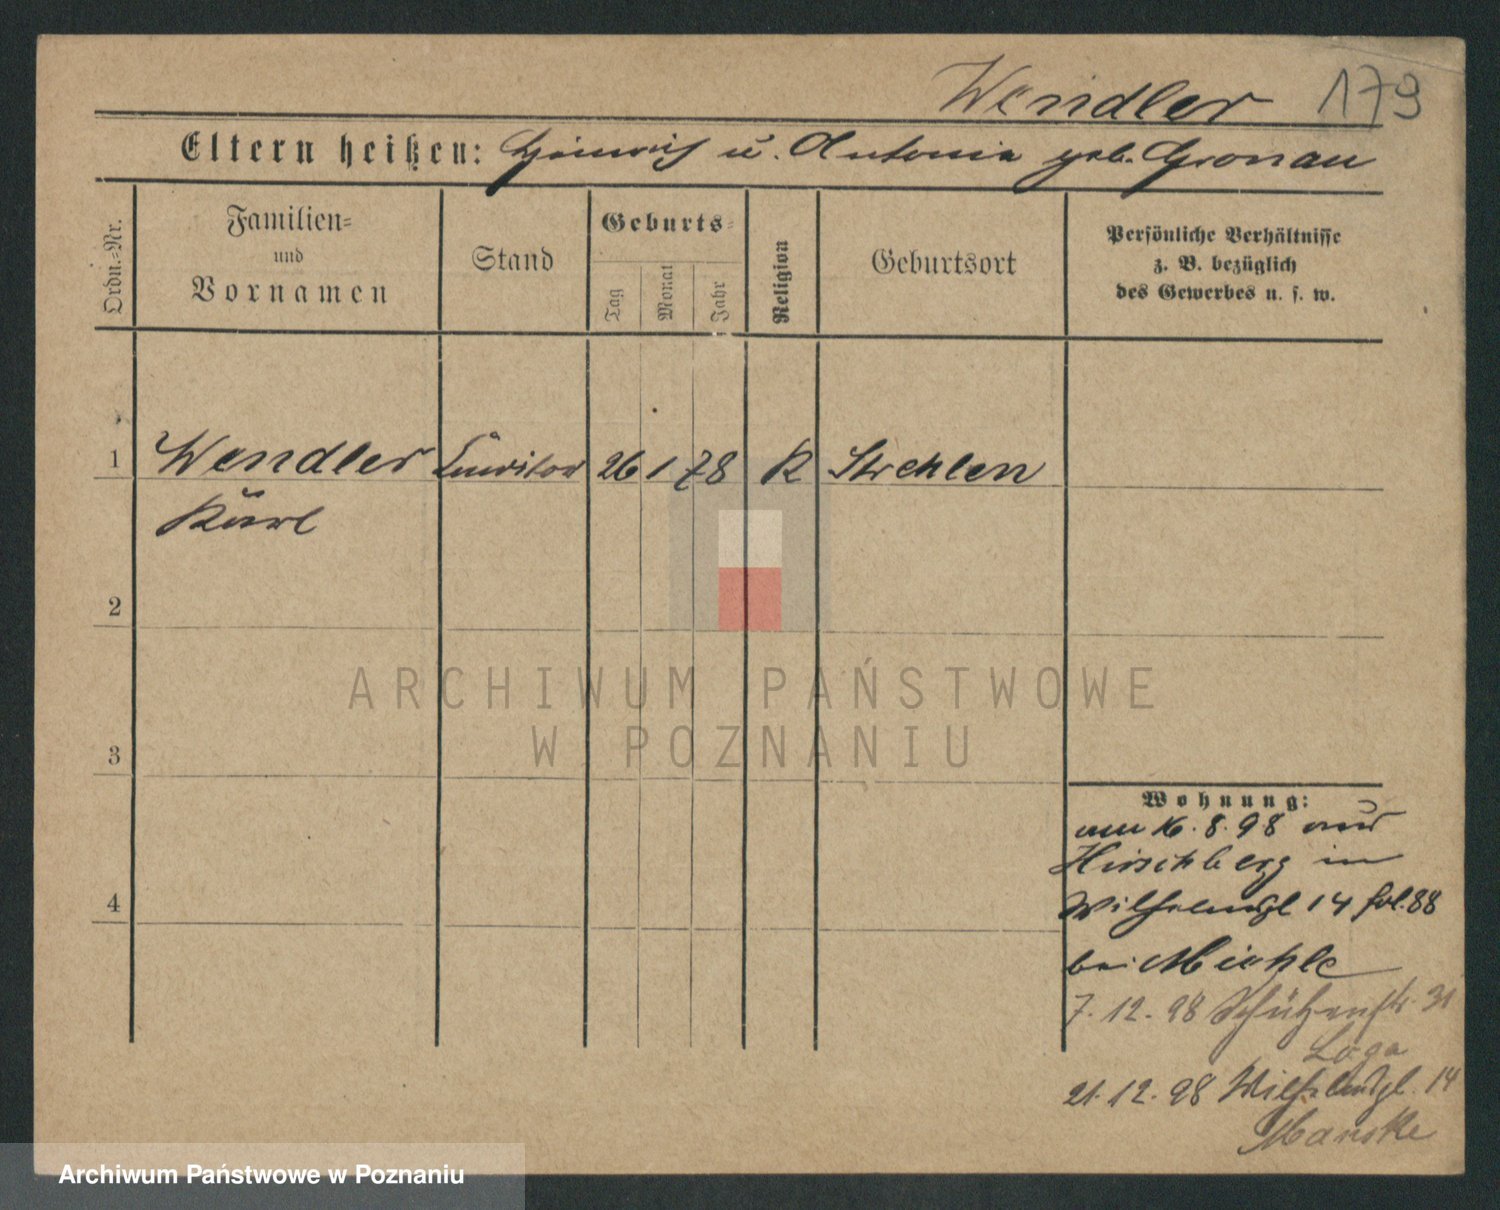 Wendler 179
Eltern heißen: Heinrich u. Antonie geb. Gronau
Ordn.-Nr.
Familien-
und
Vornamen
Stand
Geburts-
Tag
Monat
Jahr
Religion
Geburtsort
Persönliche Verhältnisse
z. B. bezüglich
des Gewerbes u. s. w.
1 Wendler Conditor 26 1 78 K Strehlen
Karl
2
ARCHIWUM PAŃSTWOWE
W POZNANIU
3
Wohnung:
am 16.8.98 aus
Hirschberg in
Wilhelmspl 14 fol. 88
4
bei Miehle
7.12.98 Schützenstr. 31
Loga
21.12.98 Wilhelmspl. 14
Manske
Archiwum Państwowe w Poznaniu